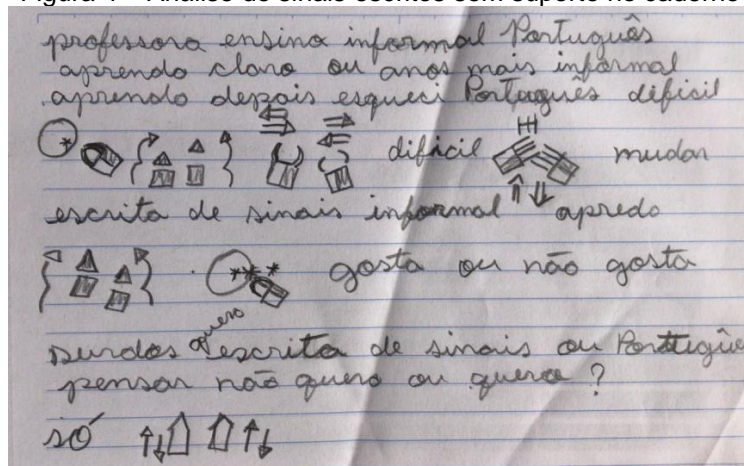 Figura 1 – Análise de sinais escritos com suporte no caderno
professora ensina informal Português
aprendo claro ou anos mais informal
aprendo depois esqueci Português dificil
dificil mudar
escrita de sinais informal apredo
gosta ou não gosta
quero
surdos escrita de sinais ou Portuguê
pensar não quero ou quero ?
só